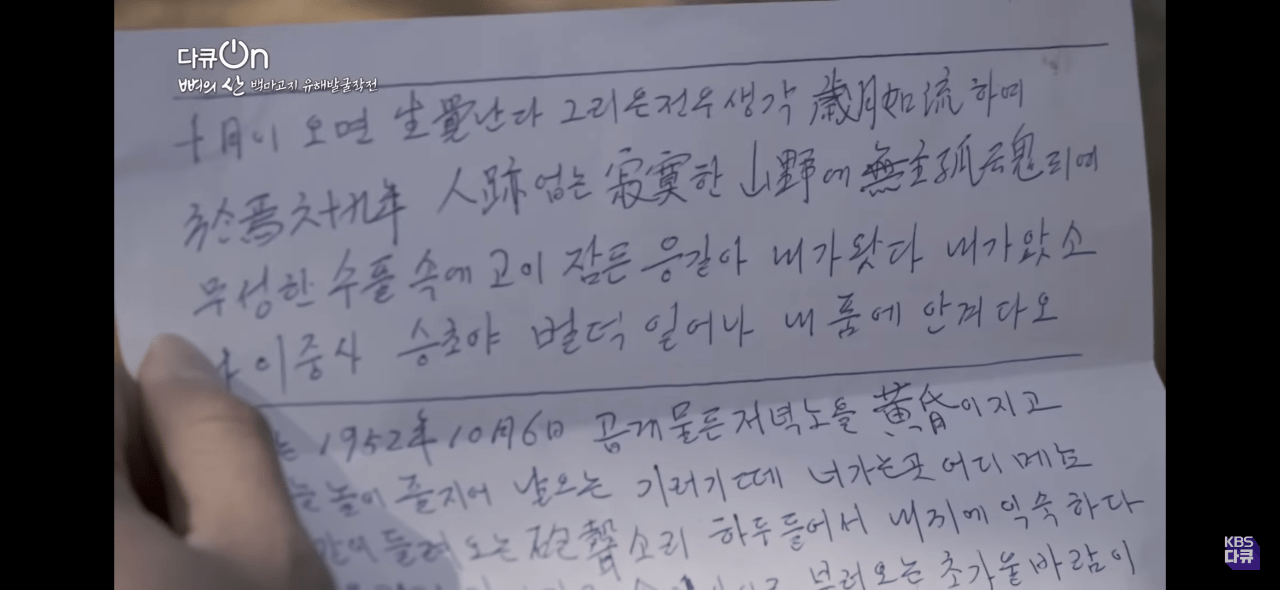 다큐On
뼈의 산 백마고지 유해발굴작전
十月이 오면 生覺난다 그리운전우생각 歲月如流하여
於焉六十九年 人跡없는 寂寞한 山野에 無主孤魂되여
무성한 수플속에 고이 잠든 응길아 내가왔다 내가왔소
이중사 승초야 벌덕 일어나 내품에 안겨다오
는 1952年10月6日 곱게물든저녁노을 黃昏이지고
늘높이 줄지어 날으는 기러기떼 너가는곳 어디메뇨
들려오는 砲聲소리 하두들어서 내귀에 익숙하다
부러오는 초가을바람이
KBS
다큐